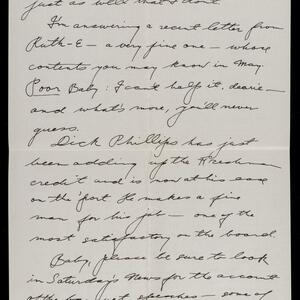 just as well that I don't
I'm answering a recent letter from
Ruth-E - a very fine one - whose
contents you may know in May.
Poor Baby: I can't help it, dearie -
and what's more, you'll never
guess.
Dick Phillips has just
been adding up the Freshman
credit and is now at his ease
on the port. He makes a fine
man for his job - one of the
most satisfactory on the board.
Baby, please be sure to look
in Saturday's News for the account
of the speeches - some of